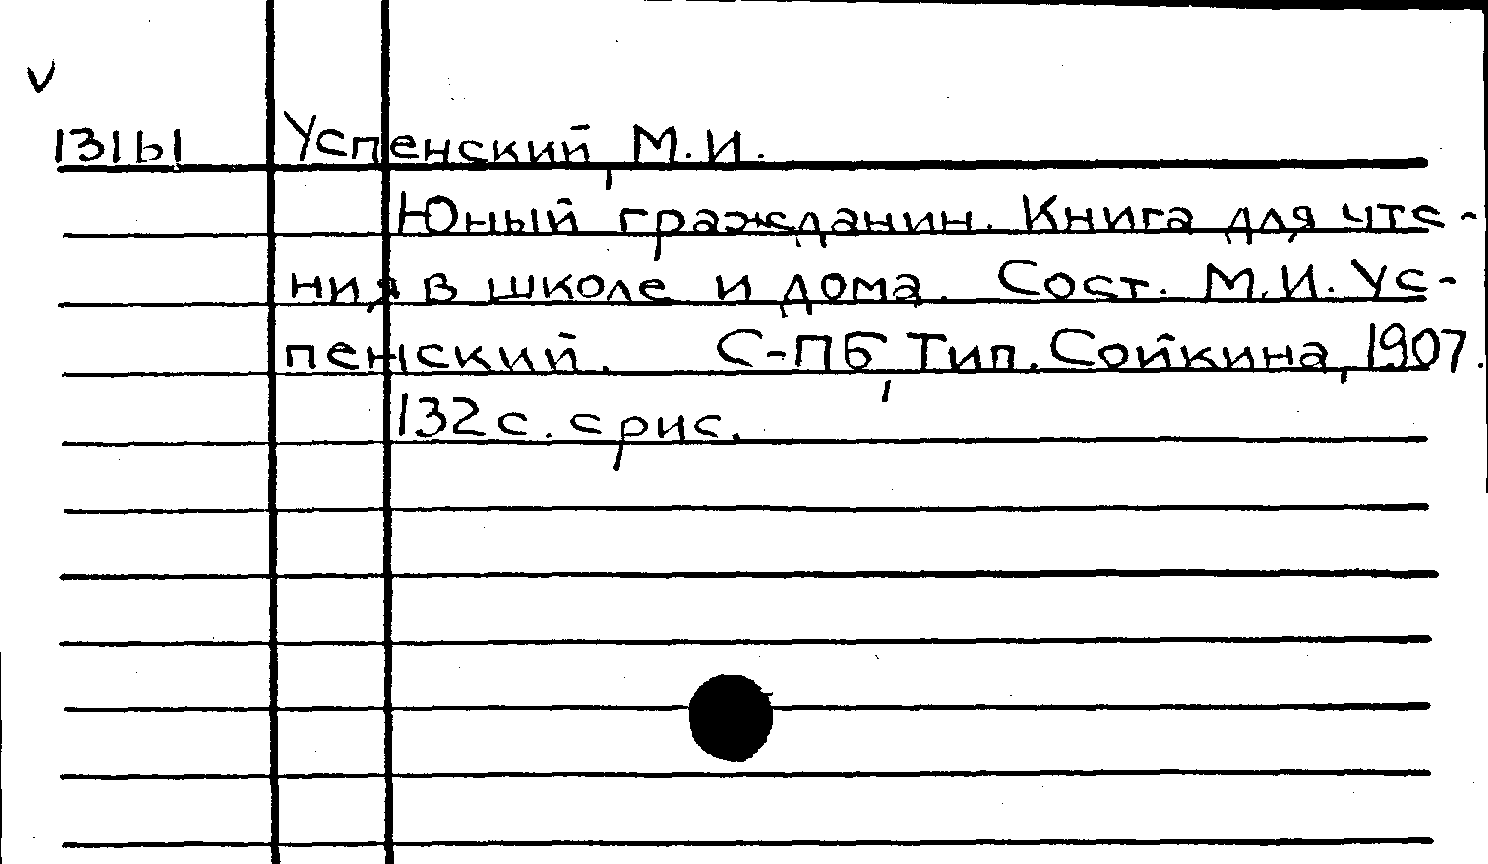 V
13161 Успенский, М.И.
Юный гражданин. Книга для чте-
ния в школе и дома. Сост. М.И. Ус-
пенский. С-ПБ, Тип. Сойкина, 1907.
132 с. с рис.